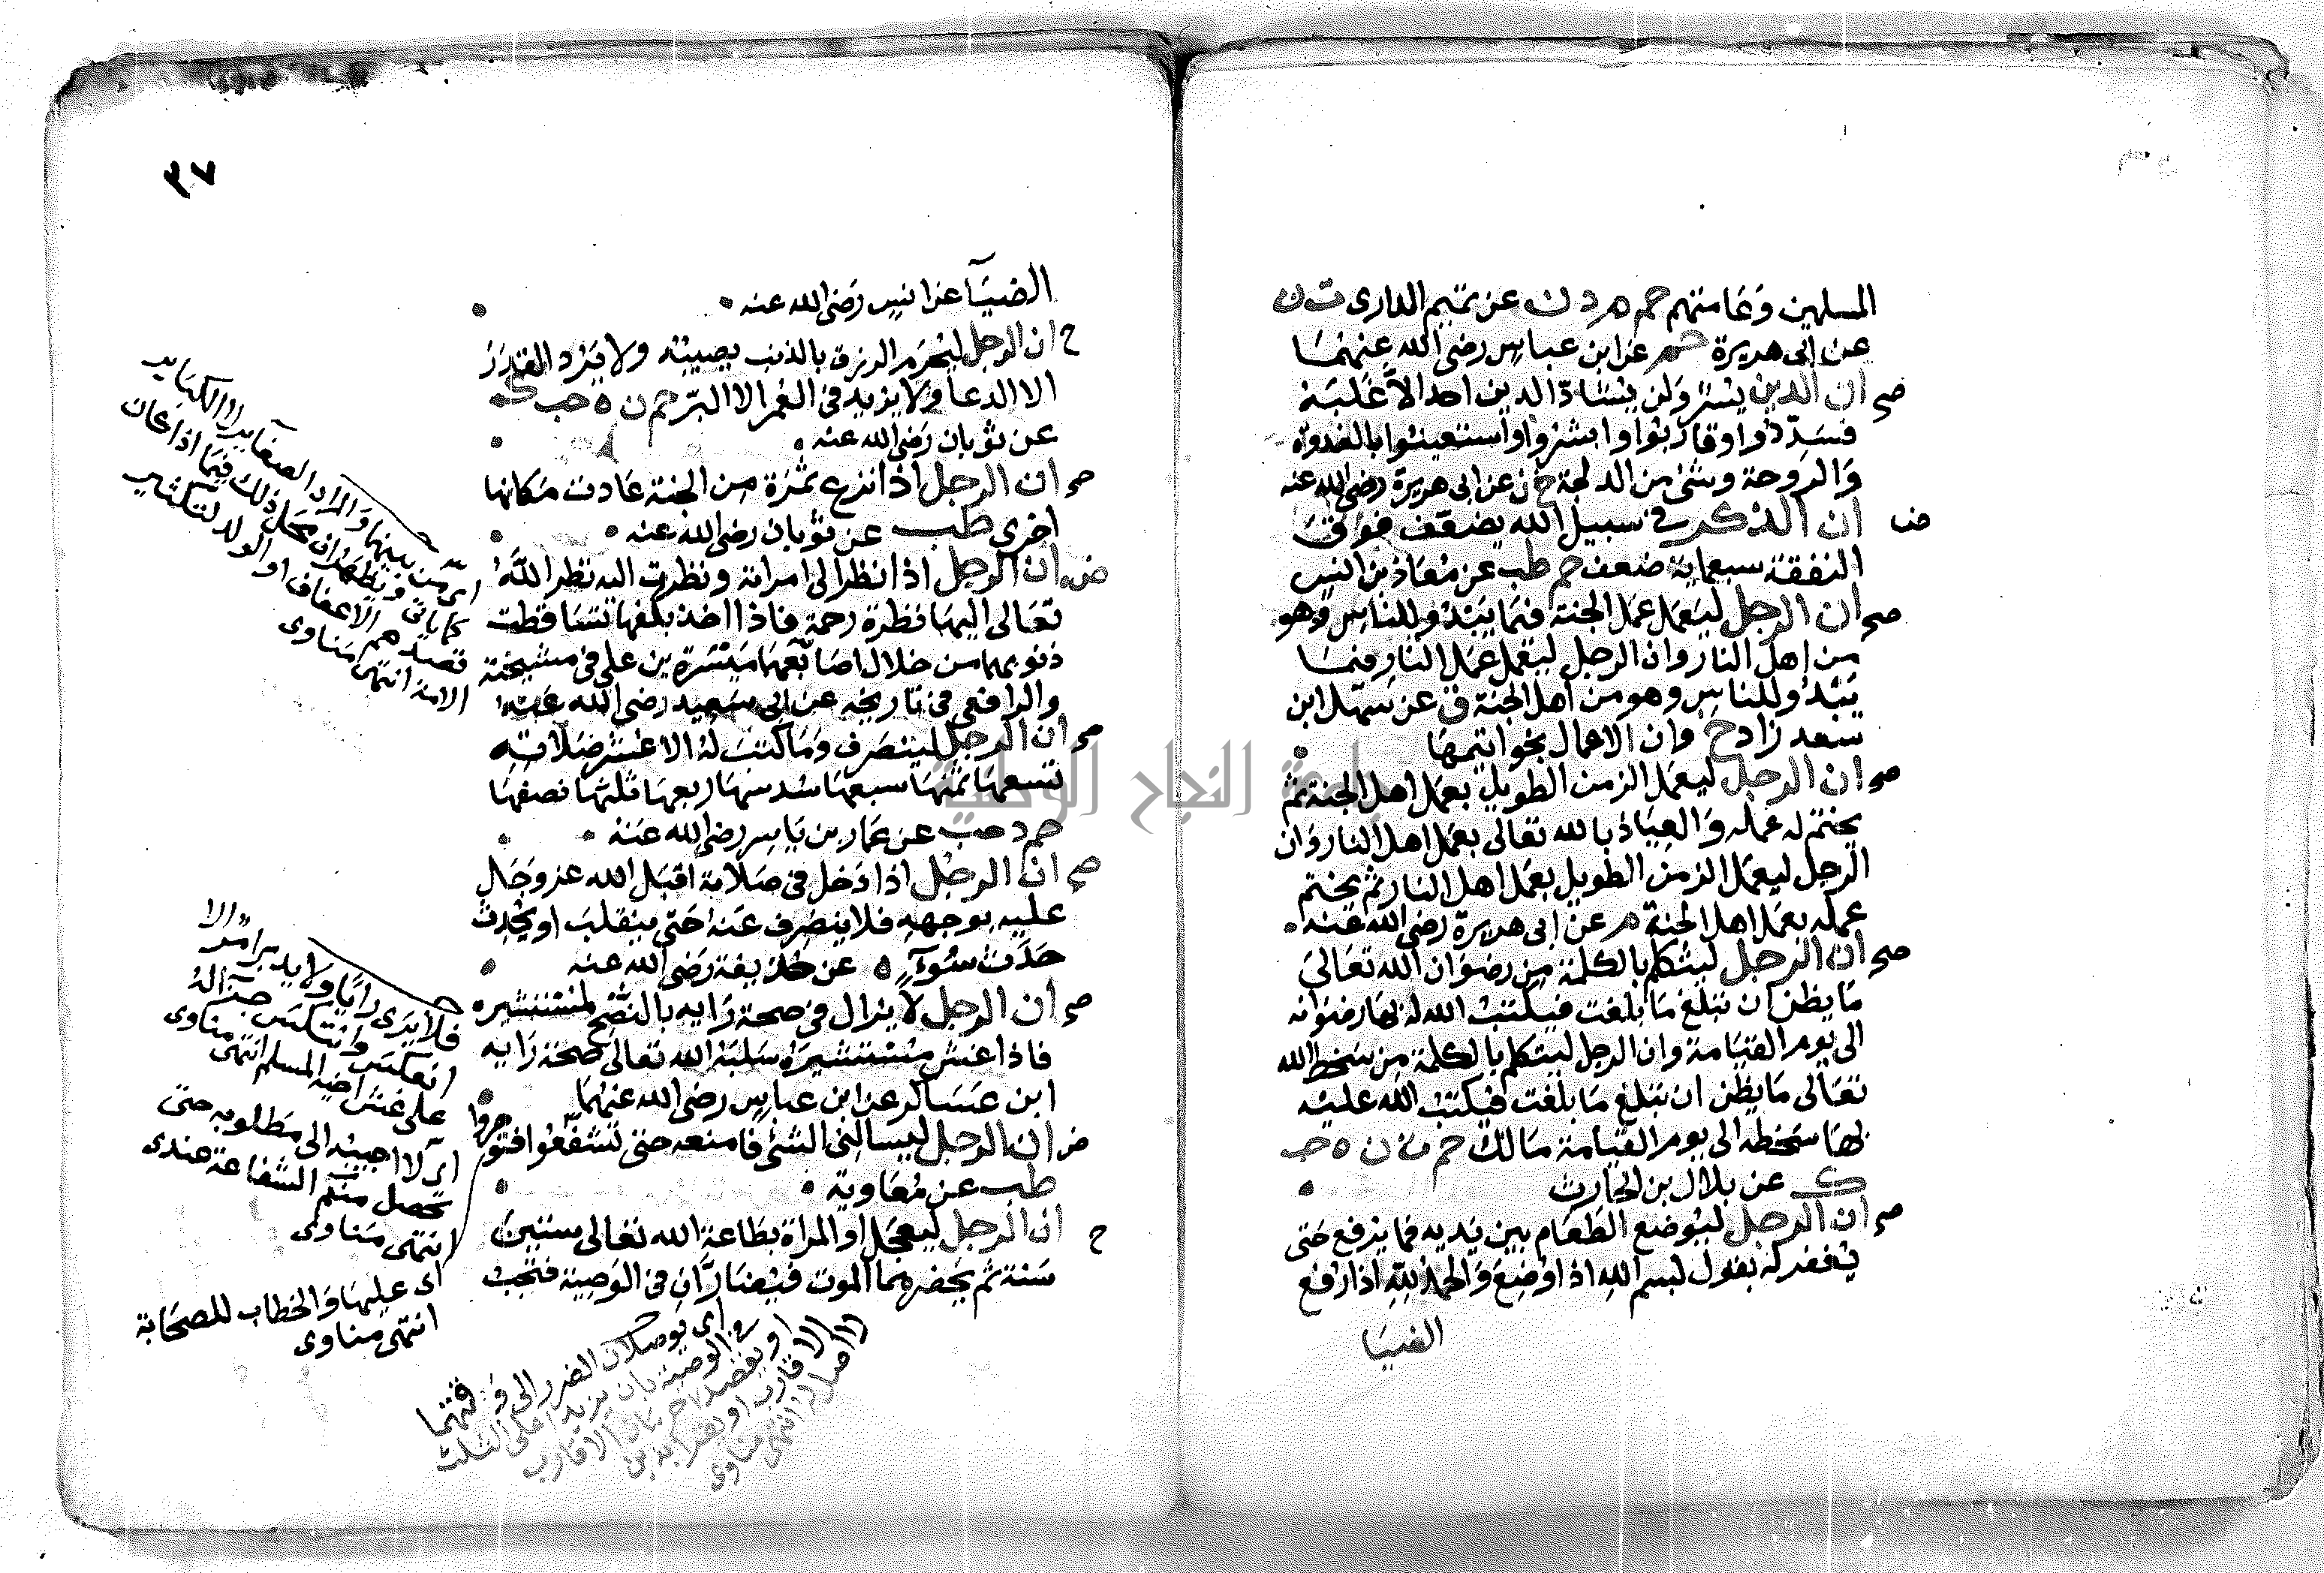 المسلمين وعامتهم حم م د ن عن تميم الدارى ت ن
عن ابى هريرة حم عن ابن عباس رضى الله عنهما
صح ان الدين يسر ولن يشاد الدين احد الا غلبه
فسددوا وقاربوا وابشروا واستعينوا بالغدوة
والروحة وشئ من الدلجة خ ن عن ابى هريرة رضى الله عنه
ض ان الذكر فى سبيل الله يضعف فوق
النفقة سبعماية ضعف حم طب عن معاذ بن انس
صح ان الرجل ليعمل عمل الجنة فيما يبدو للناس وهو
من اهل النار وان الرجل ليعمل عمل النار فيما
يبدو للناس وهو من اهل الجنة ق عن سهل ابن
سعد زاد خ وان الاعمال بخواتيمها
صح ان الرجل ليعمل الزمن الطويل بعمل اهل الجنة ثم
يختم له عمله والعياذ بالله تعالى بعمل اهل النار وان
الرجل ليعمل الزمن الطويل بعمل اهل النار ثم يختم
عمله بعمل اهل الجنة م عن ابى هريرة رضى الله عنه
صح ان الرجل ليتكلم بالكلمة من رضوان الله تعالى
ما يظن ان تبلغ ما بلغت فيكتب الله له بها رضوانه
الى يوم القيامة وان الرجل ليتكلم بالكلمة من سخط الله
تعالى ما يظن ان تبلغ ما بلغت فيكتب الله عليه
بها سخطه الى يوم القيامة مالك حم ت ن ه حب
ك عن بلال بن الحارث
صح ان الرجل ليوضع الطعام بين يديه فما يرفع حتى
يغفر له يقول بسم الله اذا وضع والحمد لله اذا رفع
الضيا
٣٧
الضيآ عن انس رضى الله عنه
ح ان الرجل ليحرم الرزق بالذنب يصيبه ولا يرد القدر
الا الدعا ولا يزيد فى العمر الا البر حم ن ه حب ك
عن ثوبان رضى الله عنه
صح ان الرجل اذا نزع ثمرة من الجنة عادت مكانها
اخرى طب عن ثوبان رضى الله عنه
ض ان الرجل اذا نظر الى امراته ونظرت اليه نظر الله
تعالى اليهما نظرة رحمة فاذا اخذ بكفها تساقطت
ذنوبهما من خلال اصابعهما ميسرة بن على فى مشيخته
والرافعى فى تاريخه عن ابى سعيد رضى الله عنه
صح ان الرجل لينصرف وما كتب له الا عشر صلاته
تسعها ثمنها سبعها سدسها ربعها ثلثها نصفها
حم د حب عن عمار بن ياسر رضى الله عنه
صح ان الرجل اذا دخل فى صلاته اقبل الله عز وجل
عليه بوجهه فلا ينصرف عنه حتى ينقلب او يحدث
حدث سوء ه عن حذيفة رضى الله عنه
صح ان الرجل لا يزال فى صحة رايه بالنصح لمستشيره
فاذا غش مستشيره سلبه الله تعالى صحة رايه
ابن عساكر عن ابن عباس رضى الله عنهما
ض ان الرجل ليسالنى الشئ فامنعه حتى تشفعوا فتؤجروا
طب عن معاوية
ح ان الرجل ليعمل او المراة بطاعة الله تعالى ستين
سنة ثم يحضرهما الموت فيضاران فى الوصية فتجب
اى من بينهما والمراد الصغاير لا الكباير
كما ياتى ويظهر ان محل ذلك فيما اذا كان
قصدهم الاعفاف او الولد لتكثير
الامة انتهى مناوى
فلا يرى رايا ولا يدبر امرا الا
انعكس وانتكس جزآ له
على غش اخيه المسلم انتهى مناوى
اى لا اجيبه الى مطلوبه حتى
تحصل منكم الشفاعة عندى
انتهى مناوى
اى عليها والخطاب للصحابة
انتهى مناوى
اى يوصلان الضرر الى ورثتهما
فى الوصية بان يزيدا على الثلث
او يقصدا حرمان الاقارب
انتهى مناوى